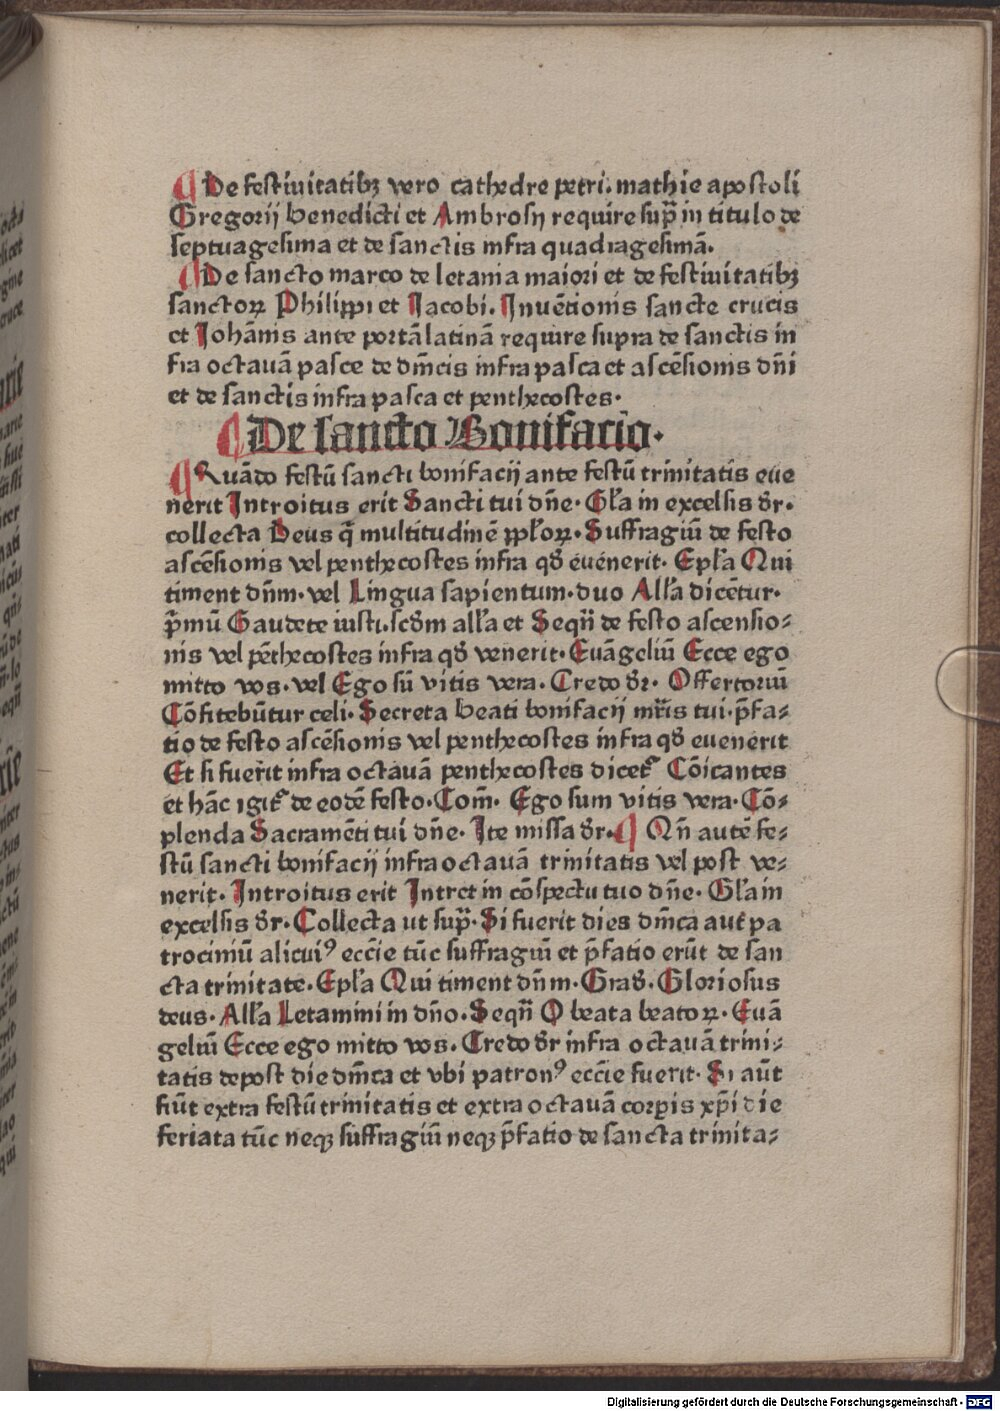 ¶ De festiuitatibꝫ vero cathedre petri. mathie apostoli
Gregorij Benedicti et Ambrosij require supᷓ in titulo de
septuagesima et de sanctis infra quadragesimā.
¶ De sancto marco de letania maiori et de festiuitatibꝫ
sanctoꝝ Philippi et Jacobi. Inuētionis sancte crucis
et Johānis ante portā latinā require supra de sanctis in
fra octauā pasce de dm̄cis infra pasca et ascēsionis dn̄i
et de sanctis infra pasca et penthecostes.
¶ De sancto Bonifacio.
¶ Quādo festū sancti bonifacij ante festū trinitatis eue
nerit Introitus erit Sancti tui dn̄e. Gl'a in excelsis dr̄.
collecta Deus q̄ multitudinē ppl'oꝝ. Suffragiū de festo
ascēsionis vel penthecostes infra qd̄ euenerit. Epl'a Qui
timent dn̄m. vel Lingua sapientum. duo All'a dicētur.
p̄mū Gaudete iusti. scd̄m all'a et Seqn̄ de festo ascensio⸗
nis vel pēthecostes infra qd̄ venerit. Euāgeliū Ecce ego
mitto vos. vel Ego sū vitis vera. Credo dr̄. Offertoriū
Cōfitebūtur celi. Secreta Beati bonifacij mr̄is tui. p̄fa⸗
tio de festo ascēsionis vel penthecostes infra qd̄ euenerit
Et si fuerit infra octauā penthecostes dicet᷑ Cōicantes
et hāc igit᷑ de eodē festo. Com̄. Ego sum vitis vera. Cō⸗
plenda Sacramēti tui dn̄e. Ite missa dr̄. ¶ Qn̄ autē fe⸗
stū sancti bonifacij infra octauā trinitatis vel post ve⸗
nerit. Introitus erit Intret in cōspectu tuo dn̄e. Gl'a in
excelsis dr̄. Collecta ut supᷓ. Si fuerit dies dm̄ca aut pa
trociniū alicuiꝰ ecc̄ie tūc suffragiū et p̄fatio erūt de san
cta trinitate. Epl'a Qui timent dn̄m. Grad̄. Gloriosus
deus. All'a Letamini in dn̄o. Seqn̄ O beata beatoꝝ. Euā
geliū Ecce ego mitto vos. Credo dr̄ infra octauā trini⸗
tatis depost die dm̄ca et vbi patronꝰ ecc̄ie fuerit. Si aūt
fiūt extra festū trinitatis et extra octauā corꝑis xp̄i die
feriata tūc neqꝫ suffragiū neqꝫ p̄fatio de sancta trinita⸗
Digitalisierung gefördert durch die Deutsche Forschungsgemeinschaft - DFG